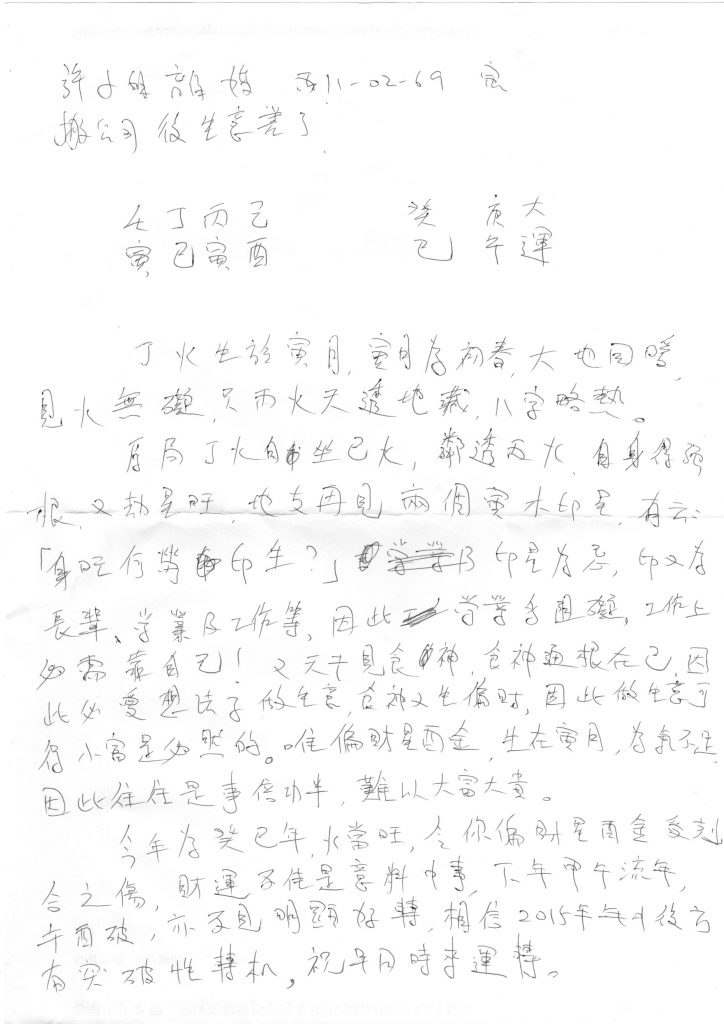 許小姐離婚 西11-02-69 寅
搬公司後生意差了
壬丁丙己 癸 庚大
寅巳寅酉 巳 午運
丁火生於寅月,寅月為初春,大地回暖,
見火無礙,只丙火天透地藏,八字略熱。
原局丁火自坐巳火,鄰透丙火,自身得強
根,又劫星旺,地支再見兩個寅木印星,有云:
「身旺何勞印生?」及印星為忌,印又為
長輩、学業及工作等,因此学業多阻礙,工作上
必需靠自己!又天干見食神,食神通根在巳,因
此必要想法子做生意,食神又生偏財,因此做生意可
得小富是必然的。唯偏財星酉金,生在寅月,為氣不足,
因此往往是事倍功半,難以大富大貴。
今年為癸巳年,火當旺,令你偏財星酉金受剋
合之傷,財運不佳是意料中事,下年甲午流年,
午酉破,亦不見明顯好轉,相信2015年年中後方
有突破性轉机,祝早日時來運轉。